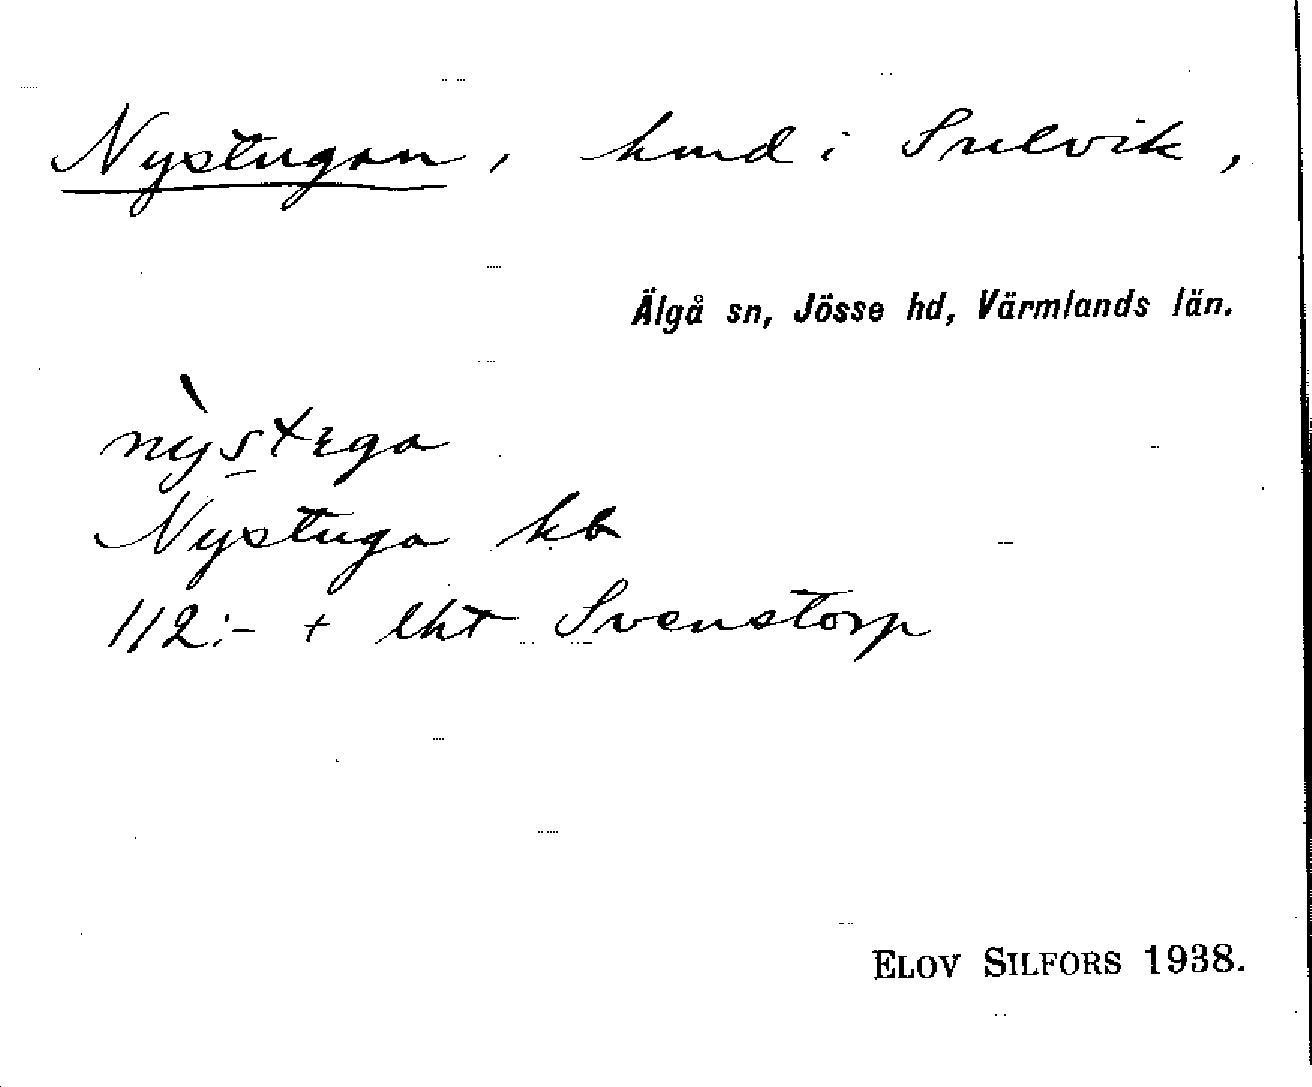 Nystugan, hmd i Sulvik,
Älgå sn, Jösse hd, Värmlands län.
nỳstega
Nystuga kb
112:- + lht Svenstorp
ELOV SILFORS 1938.